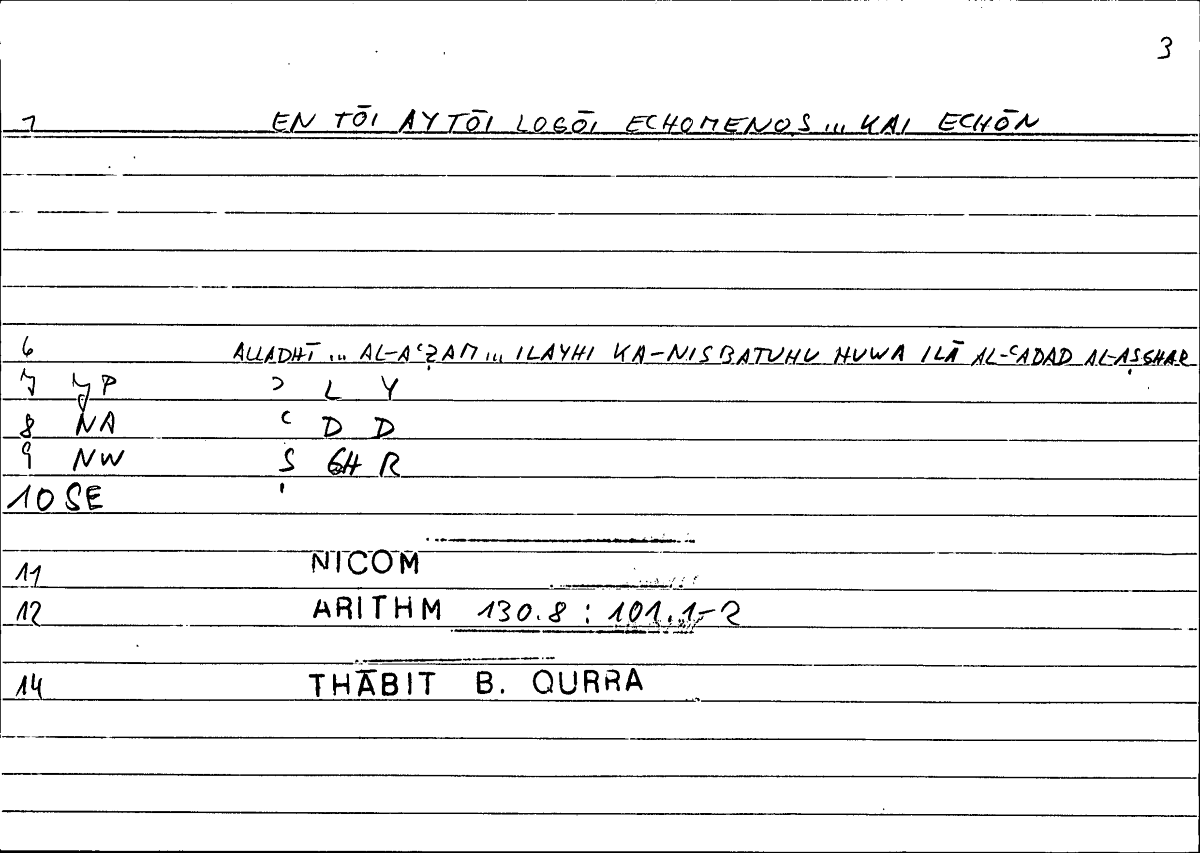 3
1 EN TŌI AYTŌI LOGŌI ECHOMENOS ... KAI ECHŌN
6 ALLADHĪ ... AL-AʿẒAM ... ILAYHI KA-NISBATUHU HUWA ILĀ AL-ʿADAD AL-AṢGHAR
7 ʾ L Y
8 NA ʿ D D
9 NW Ṣ GH R
10 SE
11 NICOM
12 ARITHM 130.8 : 101.1-2
14 THĀBIT B. QURRA